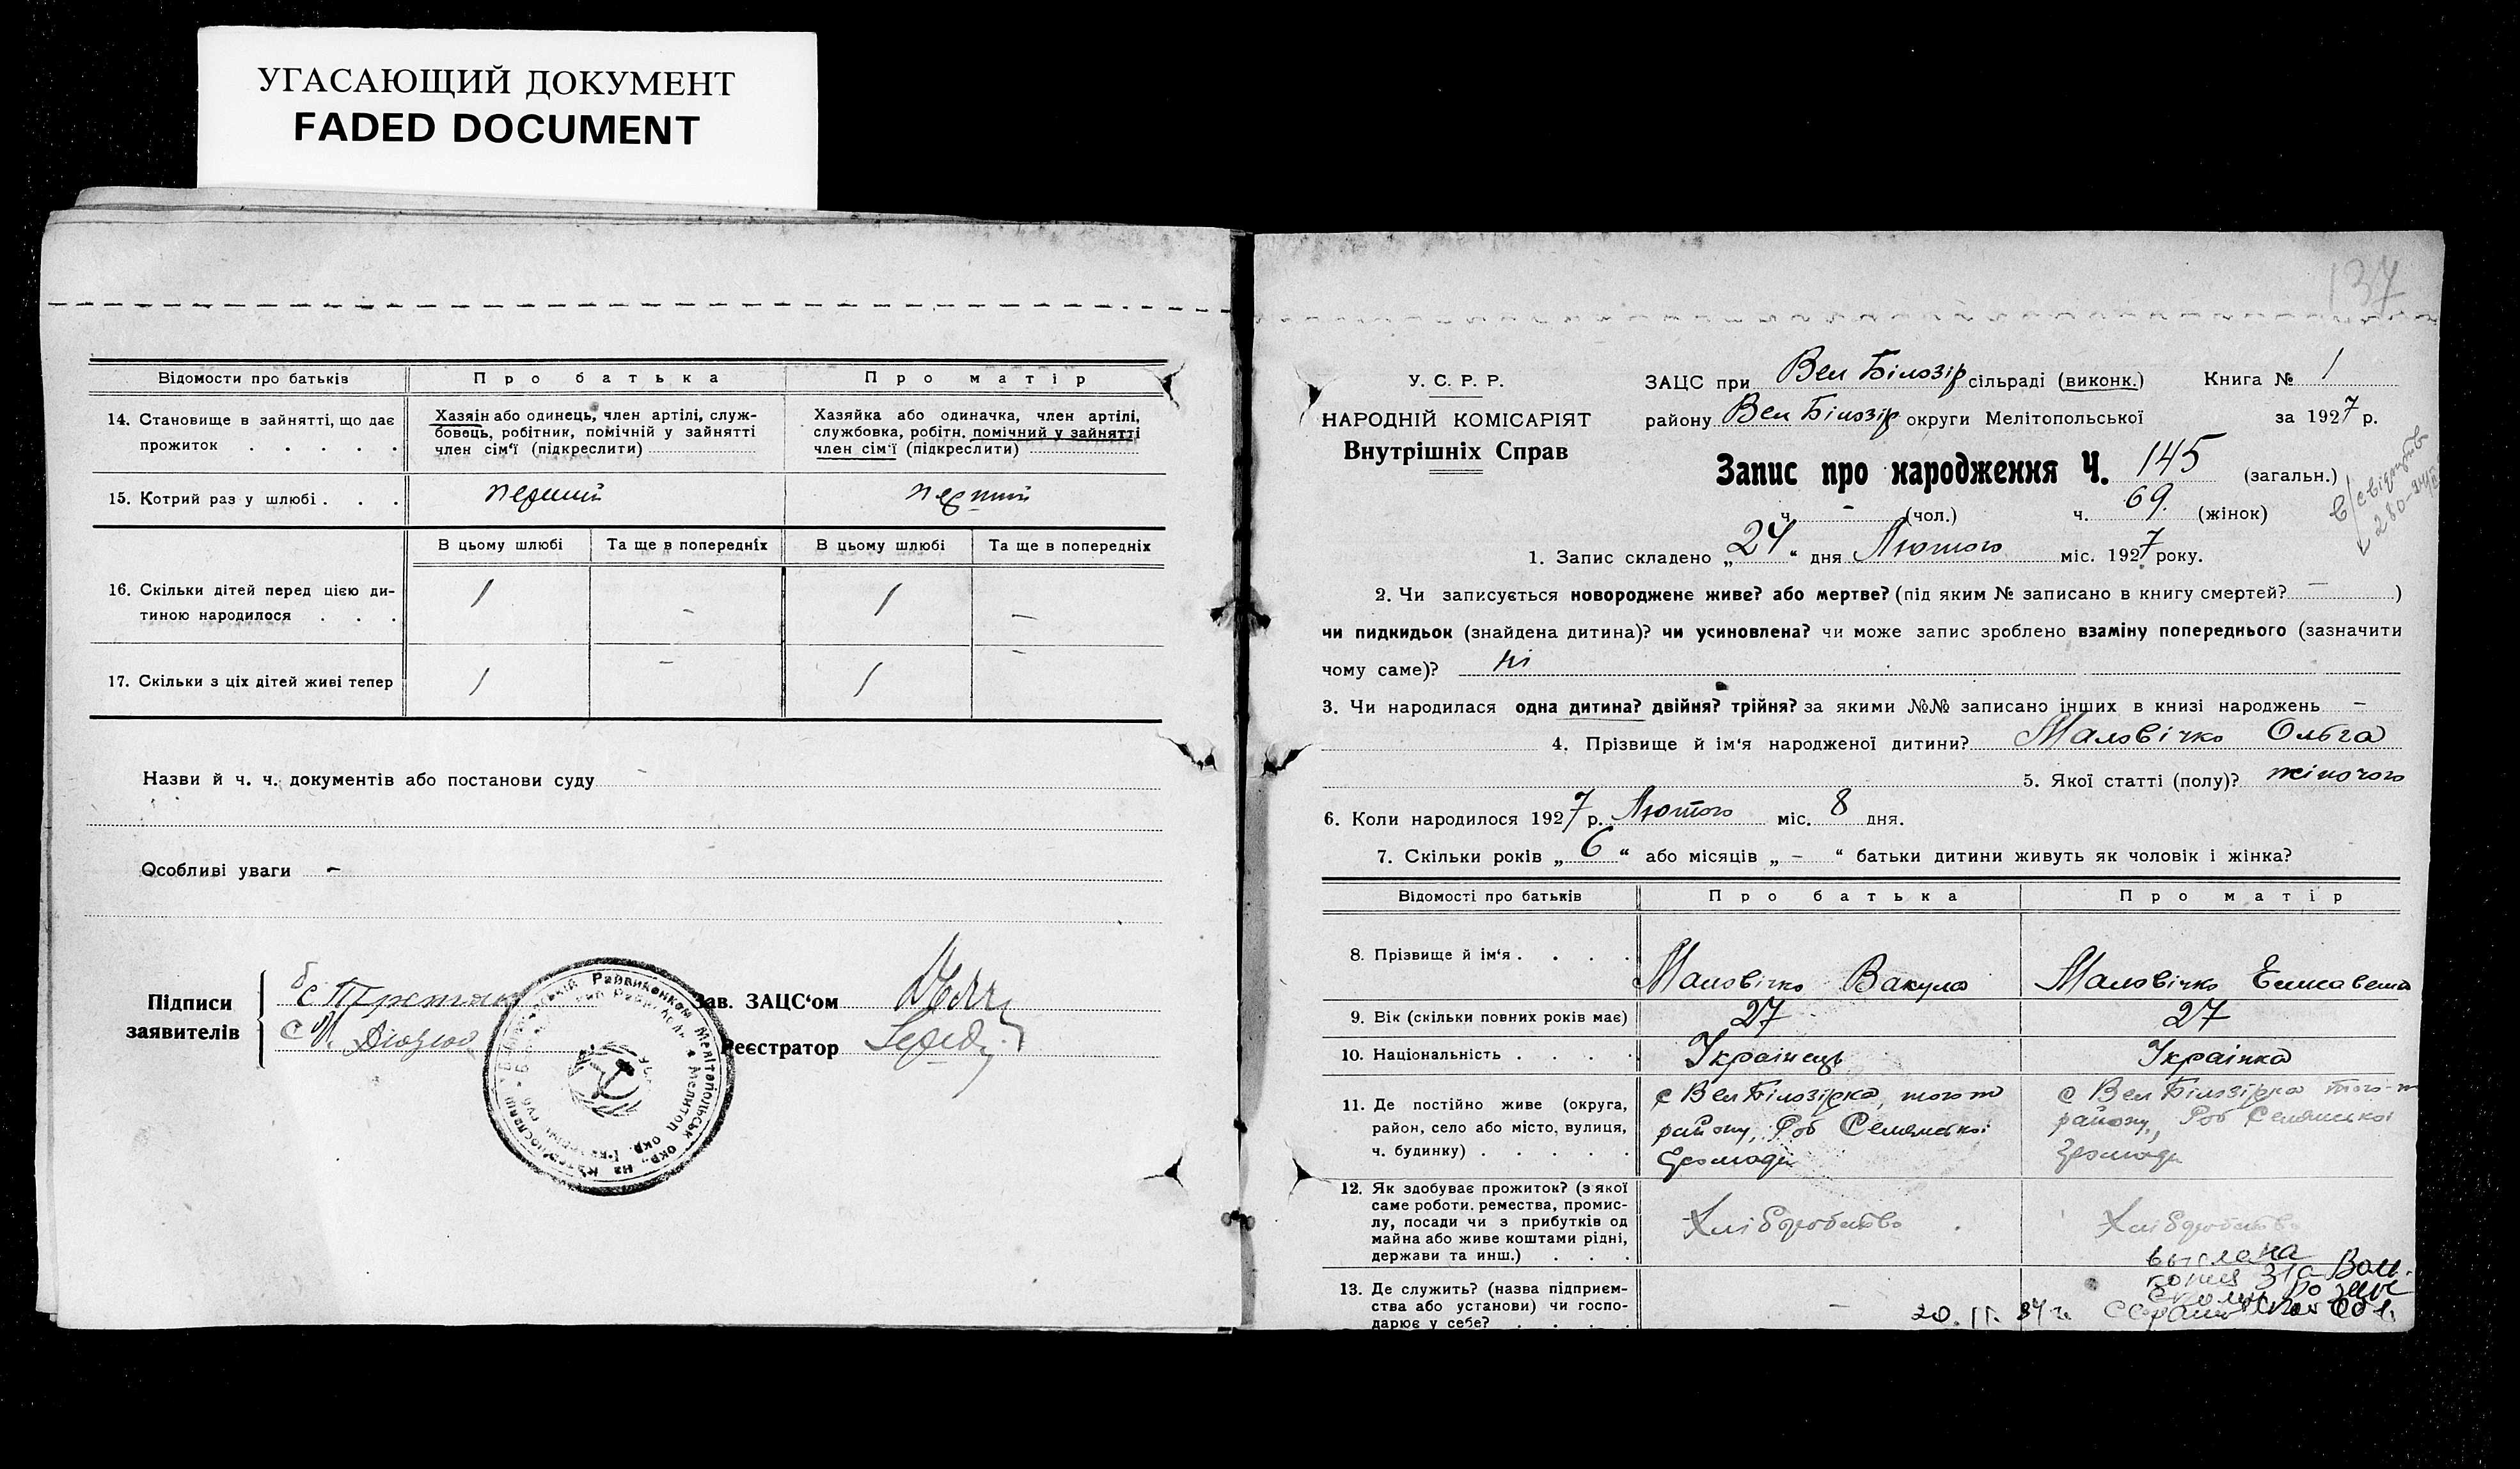 УГАСАЮЩИЙ ДОКУМЕНТ
FADED DOCUMENT
Відомости про батьків
Про батька
Про матір
14. Становище в зайнятті, що дає
прожиток . . . . .
Хазяін або одинець, член артілі, служ-
бовець, робітник, помічній у зайнятті
член сім'ї (підкреслити)
Хазяйка або одиначка, член артілі,
службовка, робітн. помічний у зайнятті
член сім'ї (підкреслити)
15. Котрий раз у шлюбі . . .
перший
перший
В цьому шлюбі
Та ще в попередніх
В цьому шлюбі
Та ще в попередніх
16. Скільки дітей перед цією ди-
тиною народилося . . .
1 - 1 -
17. Скільки з ціх дітей живі тепер
1 - 1 -
Назви й ч. ч. документів або постанови суду -
Особливі уваги -
Підписи
заявителів
Зав. ЗАЦС'ом
Реєстратор
137
У. С. Р. Р.
НАРОДНІЙ КОМІСАРІЯТ
Внутрішніх Справ
ЗАЦС при Вел Білозір сільраді (виконк.)
Книга № 1
району Вел Білозір округи Мелітопольської
за 1927 р.
Запис про народження Ч. 145 (загальн.)
ч. - (чол.) ч. 69. (жінок)
1. Запис складено „24“ дня Лютого міс. 1927 року.
2. Чи записується новороджене живе? або мертве? (під яким № записано в книгу смертей? — )
чи пидкидьок (знайдена дитина)? чи усиновлена? чи може запис зроблено взаміну попереднього (зазначити
чому саме)? ні
3. Чи народилася одна дитина? двійня? трійня? за якими №№ записано інших в книзі народжень -
4. Прізвище й ім'я народженої дитини? Маловічко Ольга
5. Якої статті (полу)? жіночого
6. Коли народилося 1927 р. Лютого міс. 8 дня.
7. Скільки років „6“ або місяців „-“ батьки дитини живуть як чоловік і жінка?
Відомості про батьків
Про батька
Про матір
8. Прізвище й ім'я . . . .
Маловічко Вакула
Маловічко Елисавета
9. Вік (скільки повних років має)
27
27
10. Національність . . . .
Українець
Українка
11. Де постійно живе (округа,
район, село або місто, вулиця,
ч. будинку) . . . . .
с Вел Білозірка, того ж
району,
Громади
с Вел Білозірка того-ж
району,
Громади
12. Як здобуває прожиток? (з якої
саме роботи, ремества, промис-
лу, посади чи з прибутків од
майна або живе коштами рідні,
держави та инш.) . . .
Хліборобство
Хліборобство
13. Де служить? (назва підприєм-
ства або установи) чи госпо-
дарює у себе? . . . .
-
выслана
копия